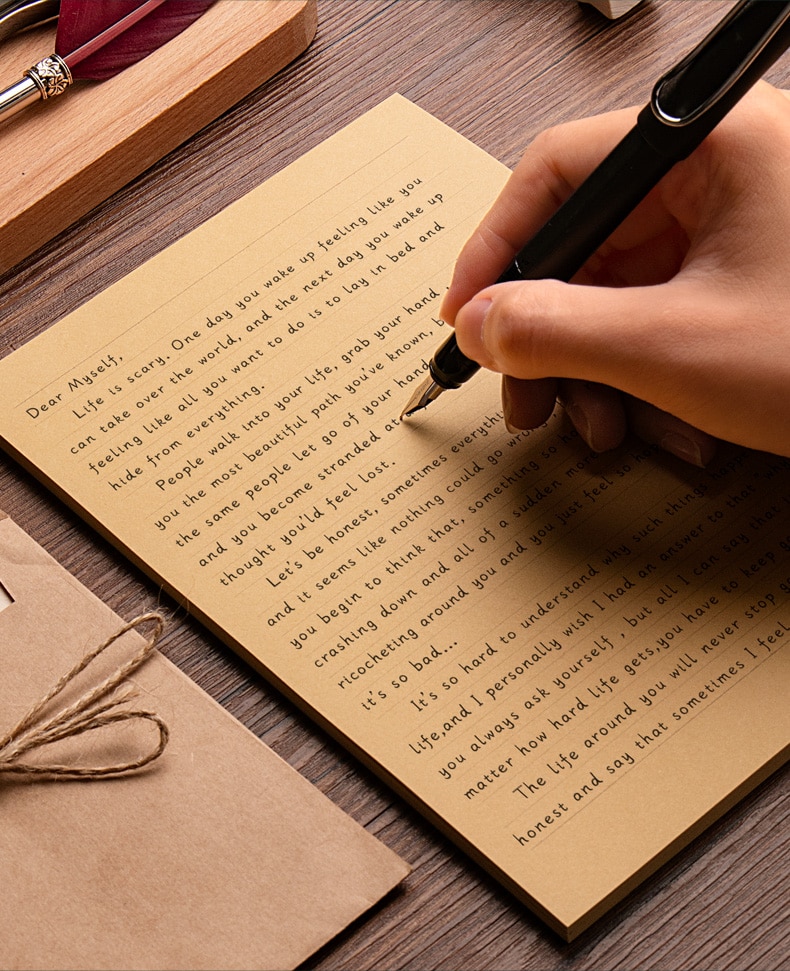 Dear Myself,
Life is scary. One day you wake up feeling like you
can take over the world, and the next day you wake up
feeling like all you want to do is to lay in bed and
hide from everything.
People walk into your life, grab your hand
you the most beautiful path you've known,
the same people let go of your hand
and you become stranded at
thought you'ld feel lost.
Let's be honest, sometimes
and it seems like nothing could go wrong
you begin to think that, something so
crashing down and all of a sudden
ricocheting around you and you just feel so
it's so bad...
It's so hard to understand why such things
life,and I personally wish I had an answer to that
you always ask yourself , but all I can say that
matter how hard life gets,you have to keep
The life around you will never stop
honest and say that sometimes I feel